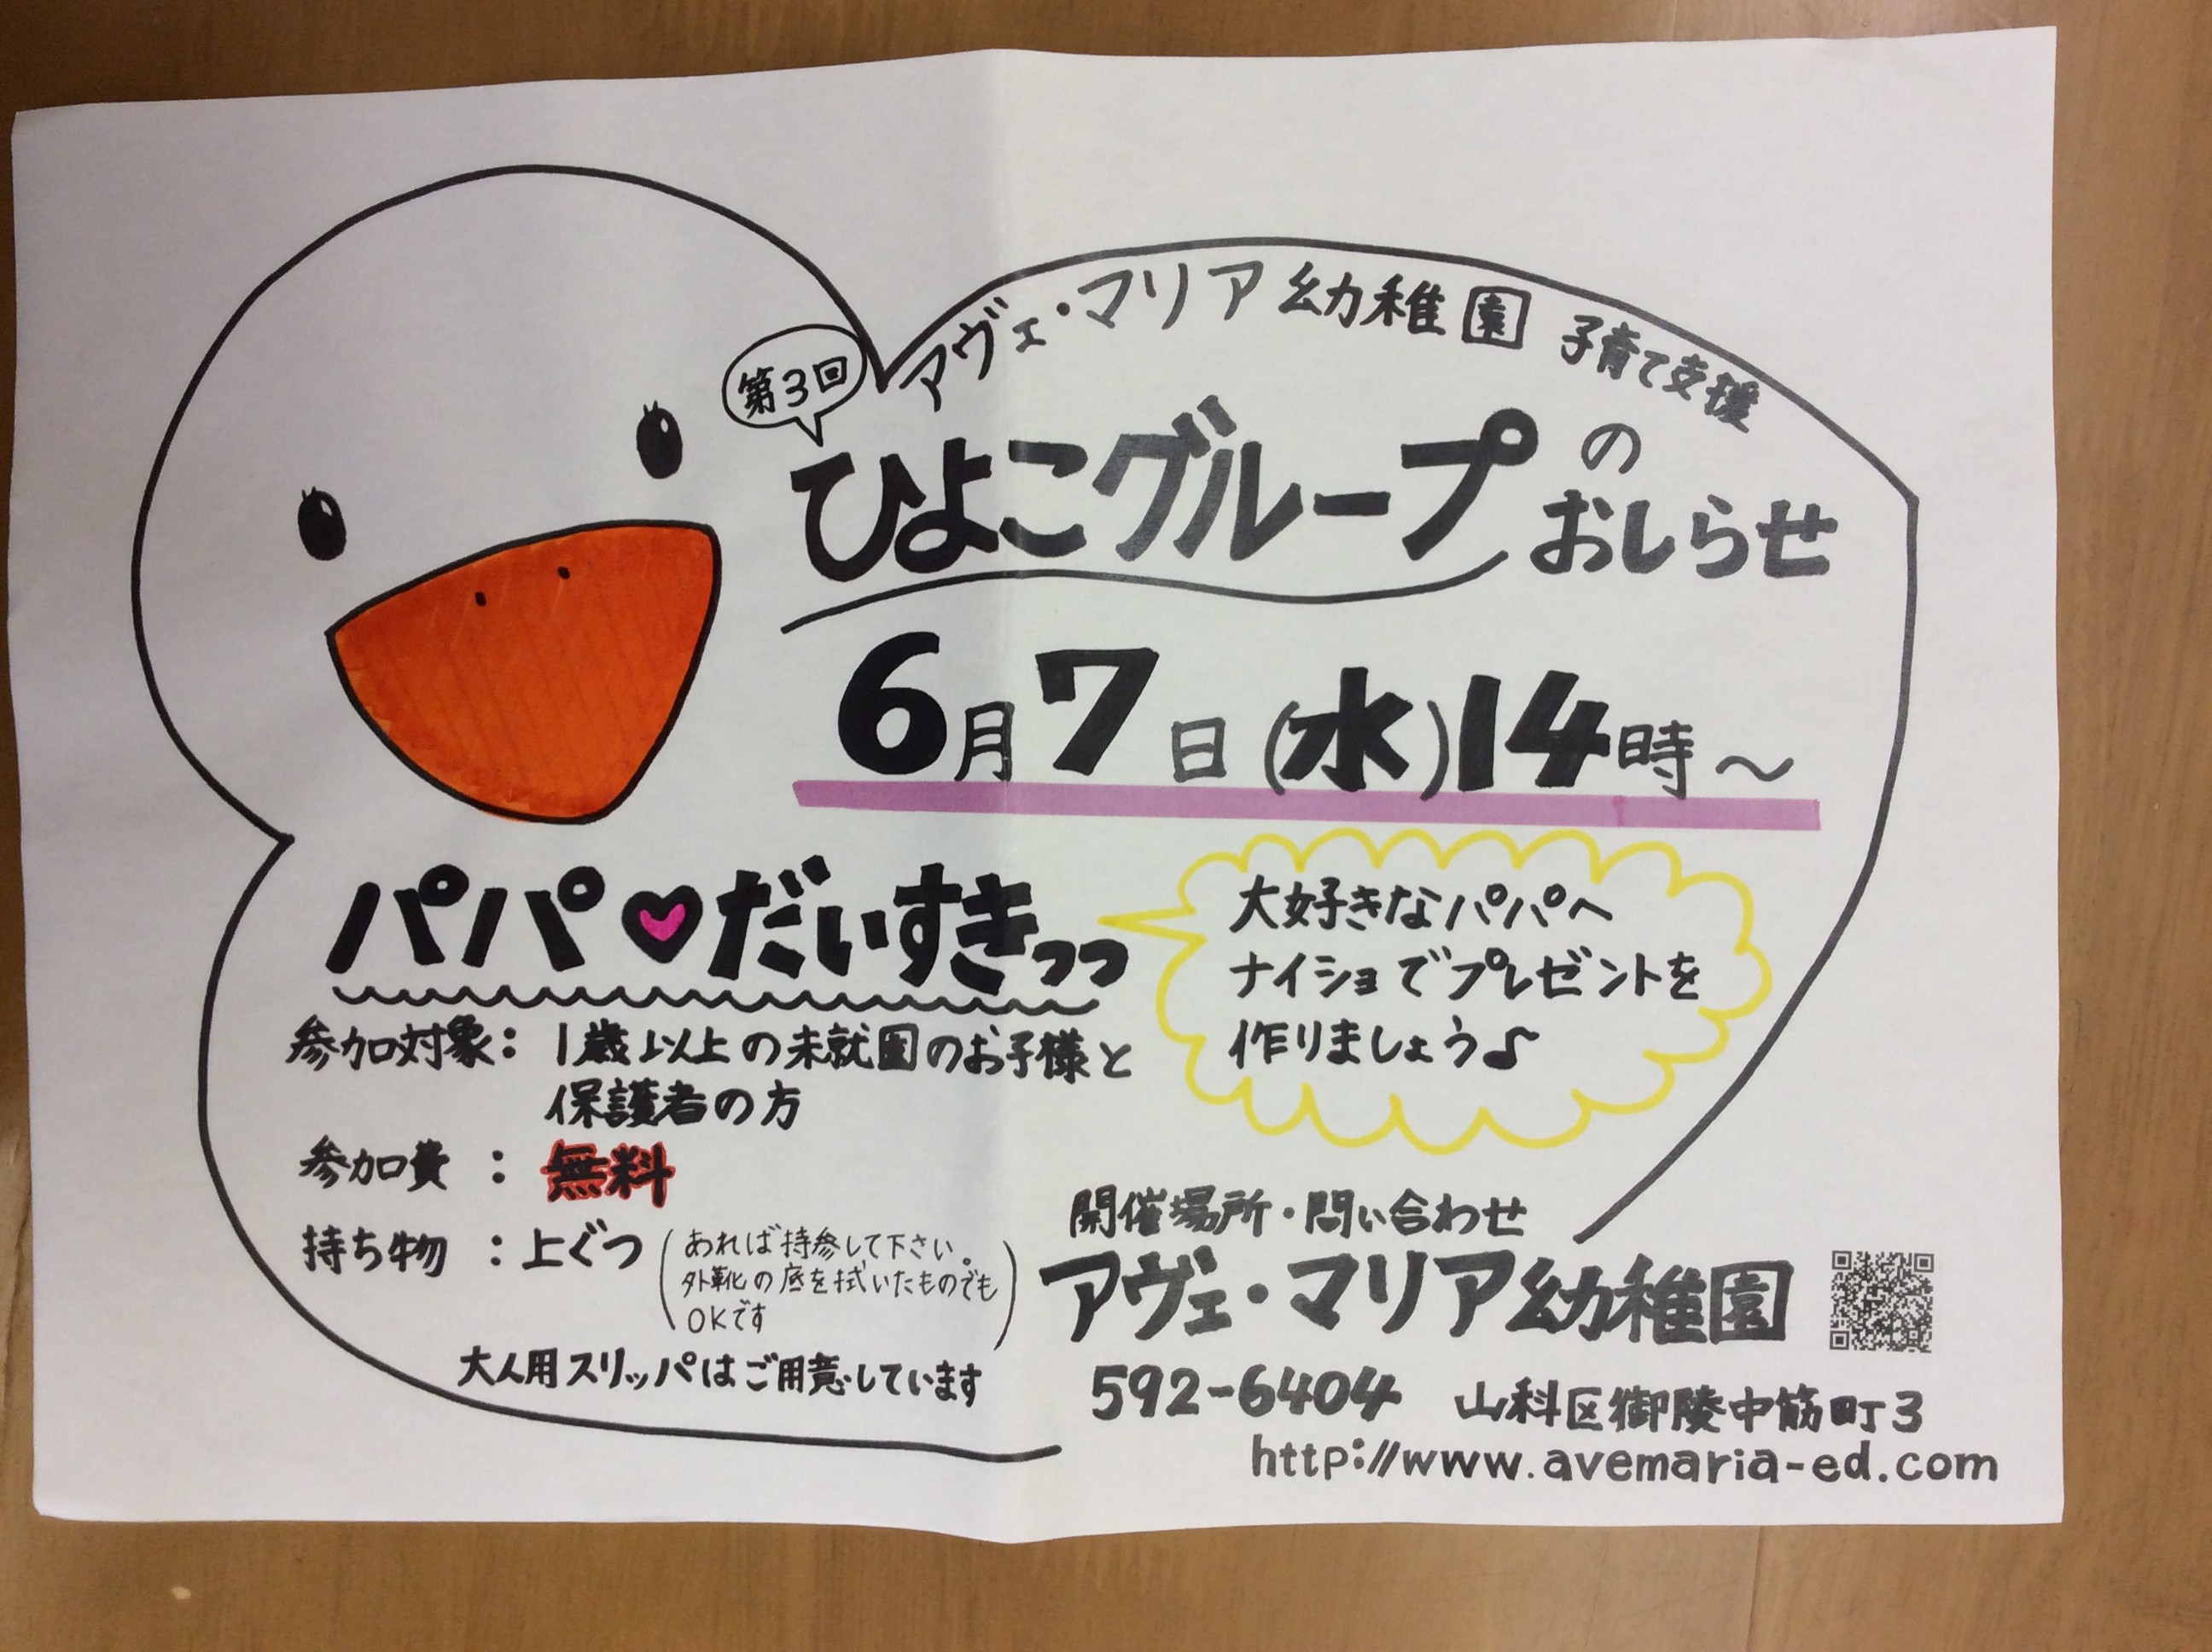 アヴェ・マリア幼稚園 子育て支援
第3回
ひよこグループの
おしらせ
6月7日(水)14時～
パパ♥だいすきっっ
大好きなパパへ
ナイショでプレゼントを
作りましょう♪
参加対象：1歳以上の未就園のお子様と
保護者の方
参加費：無料
持ち物：上ぐつ(あれば持参して下さい。
外靴の底を拭いたものでも
OKです)
大人用スリッパはご用意しています
開催場所・問い合わせ
アヴェ・マリア幼稚園
592-6404 山科区御陵中筋町3
http://www.avemaria-ed.com